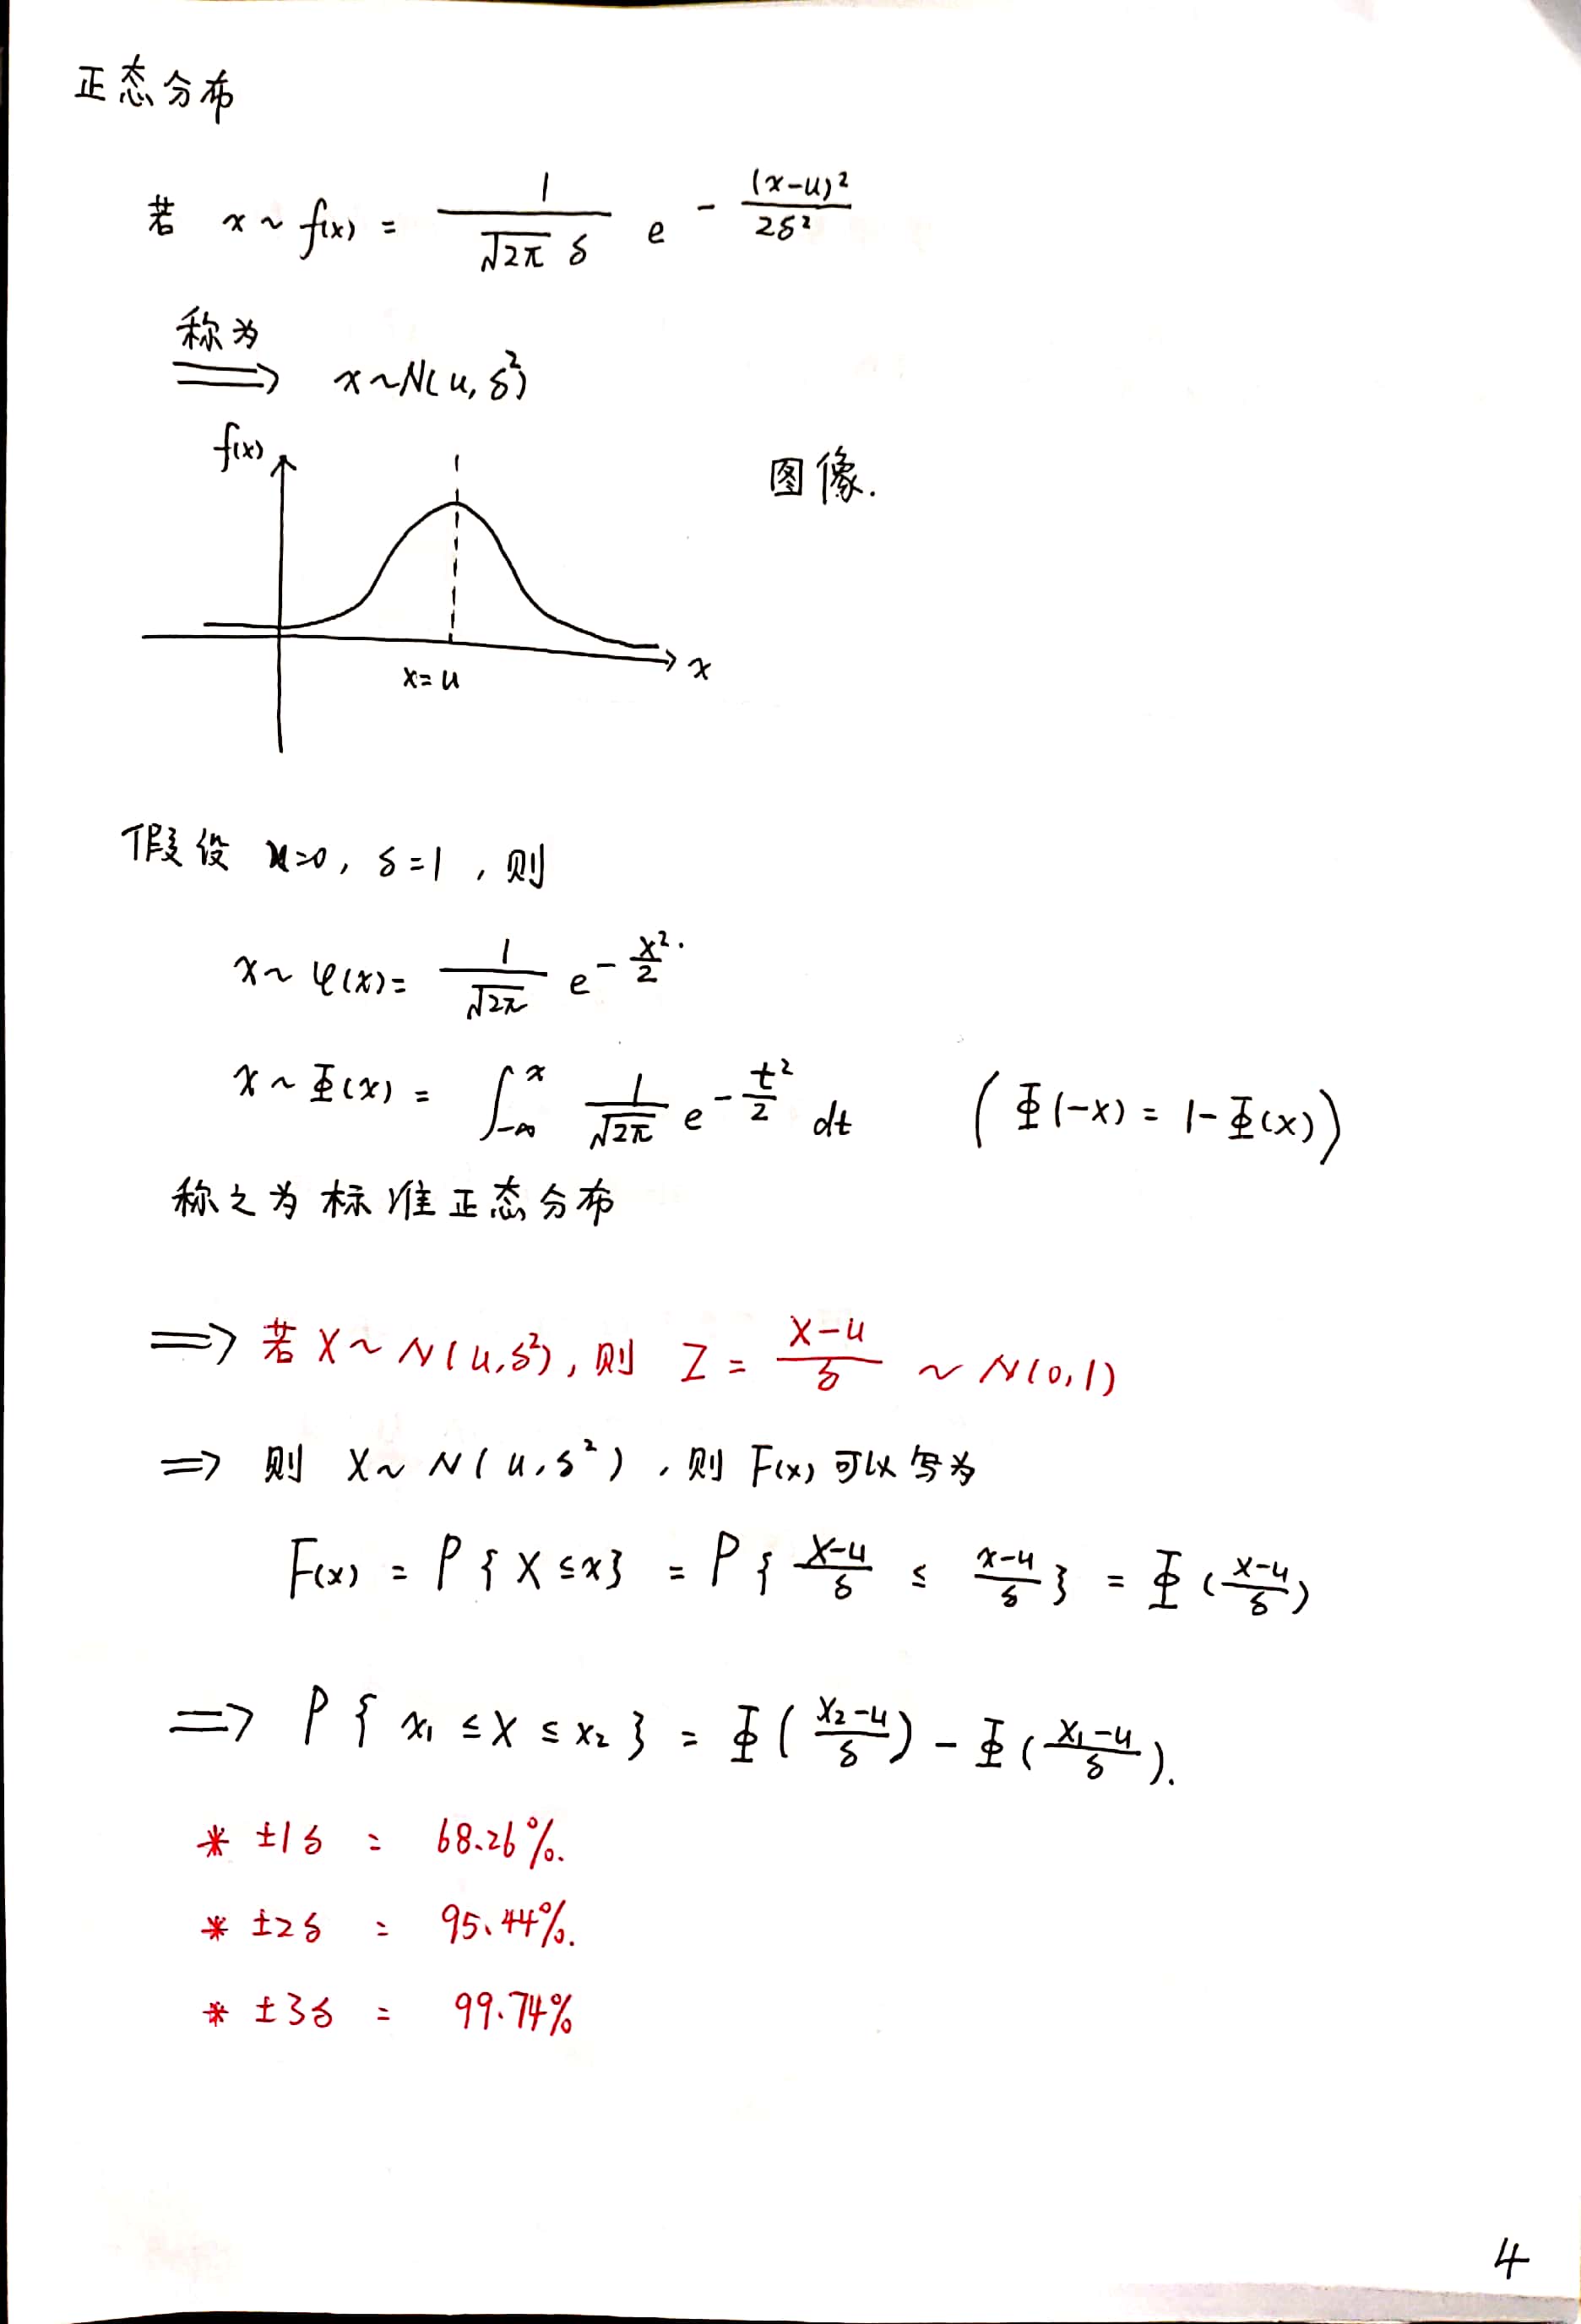 正态分布
若 x ~ f(x) = \frac{1}{\sqrt{2π} δ} e^{-\frac{(x-u)^2}{2δ^2}}
称为
⟹ x~N(u, δ²)
f(x)
图像.
x
x=u
假设 u=0, δ=1, 则
x ~ φ(x) = \frac{1}{\sqrt{2π}} e^{-\frac{x^2}{2}}.
x ~ Φ(x) = \int_{-∞}^{x} \frac{1}{\sqrt{2π}} e^{-\frac{t^2}{2}} dt (Φ(-x) = 1-Φ(x))
称之为标准正态分布
⟹ 若 X ~ N(u, δ²), 则 Z = \frac{X-u}{δ} ~ N(0,1)
⟹ 则 X ~ N(u, δ²), 则 F(x) 可以写为
F(x) = P{X ≤ x} = P{\frac{X-u}{δ} ≤ \frac{x-u}{δ}} = Φ(\frac{x-u}{δ})
⟹ P{x₁ ≤ X ≤ x₂} = Φ(\frac{x₂-u}{δ}) - Φ(\frac{x₁-u}{δ}).
* ±1δ = 68.26%.
* ±2δ = 95.44%.
* ±3δ = 99.74%
4